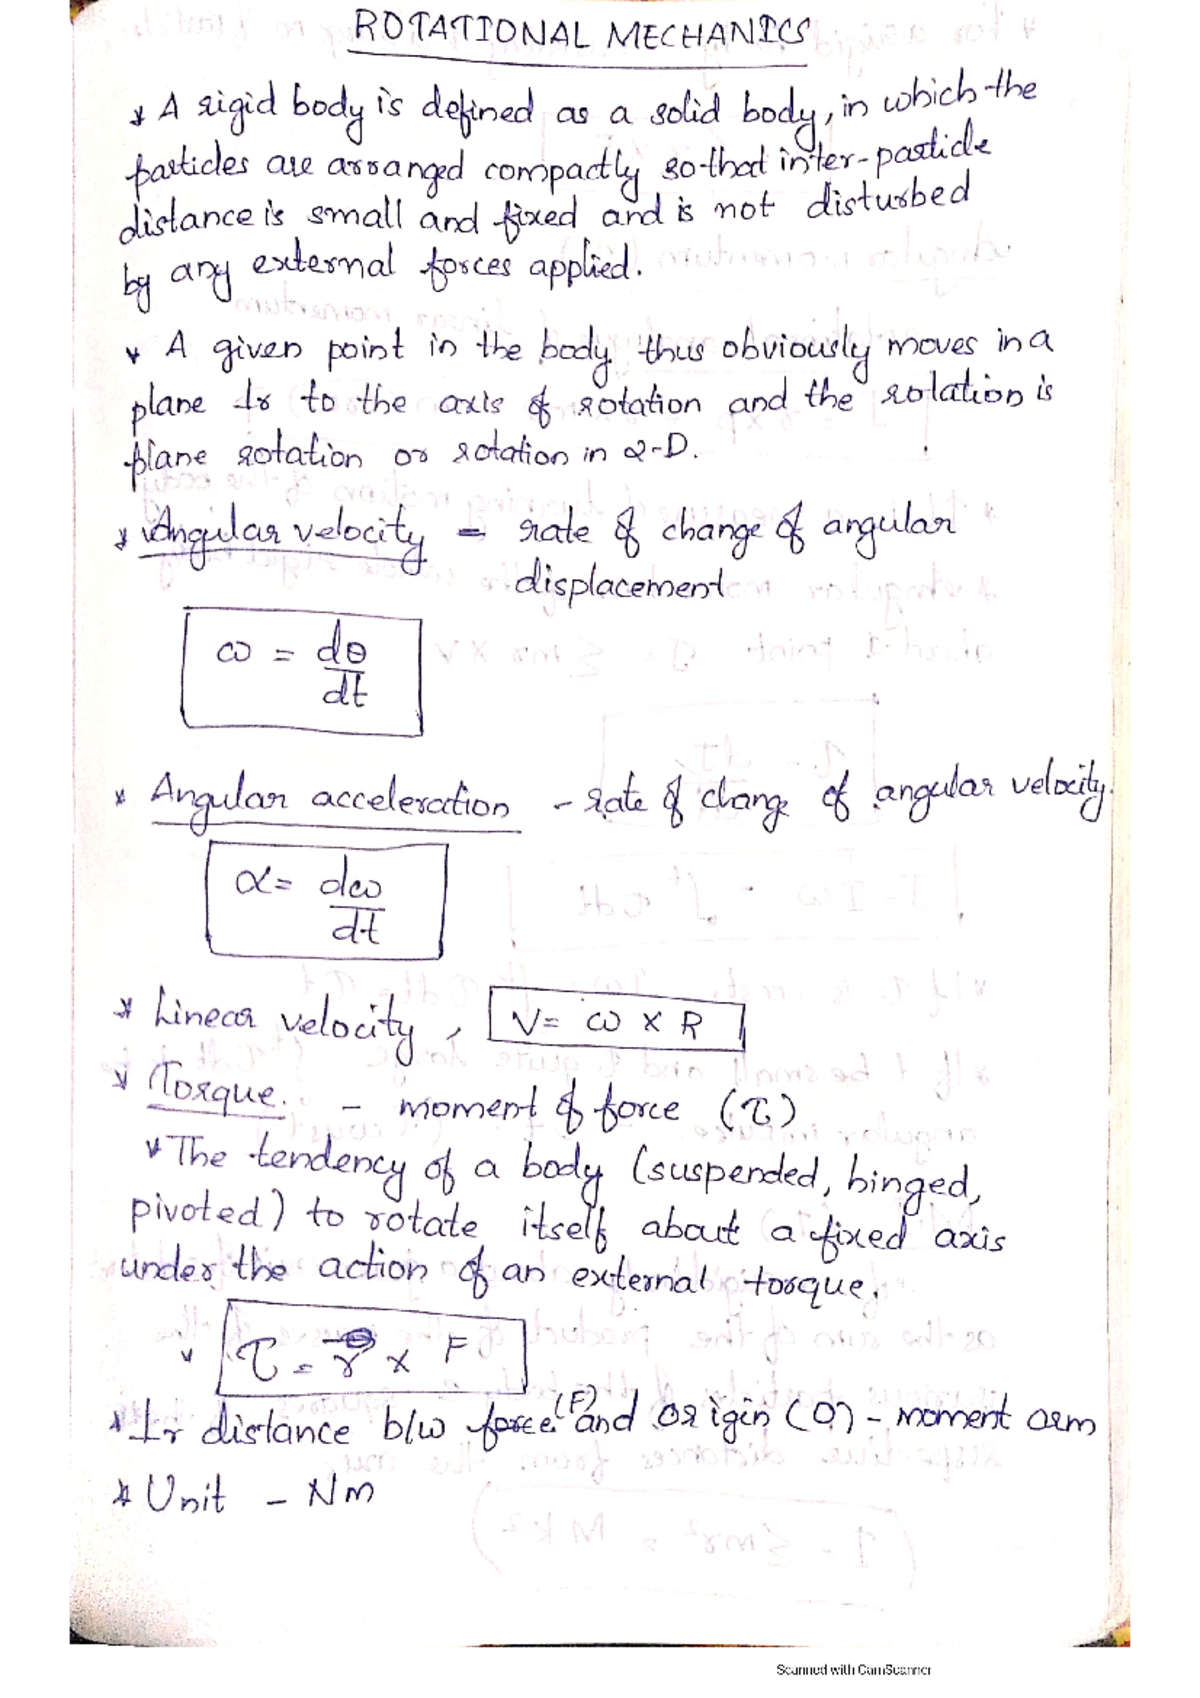 ROTATIONAL MECHANICS
* A rigid body is defined as a solid body, in which the
particles are arranged compactly so that inter-particle
distance is small and fixed and is not disturbed
by any external forces applied.
* A given point in the body thus obviously moves in a
plane ⊥r to the axis of rotation and the rotation is
plane rotation or rotation in 2-D.
* Angular velocity = rate of change of angular
displacement
ω = dθ/dt
* Angular acceleration - rate of change of angular velocity.
α = dω/dt
* Linear velocity, V = ω × R
* Torque. - moment of force (τ)
* The tendency of a body (suspended, hinged,
pivoted) to rotate itself about a fixed axis
under the action of an external torque.
τ = r × F
* ⊥r distance b/w force (F) and origin (O) - moment arm
* Unit - Nm
Scanned with CamScanner